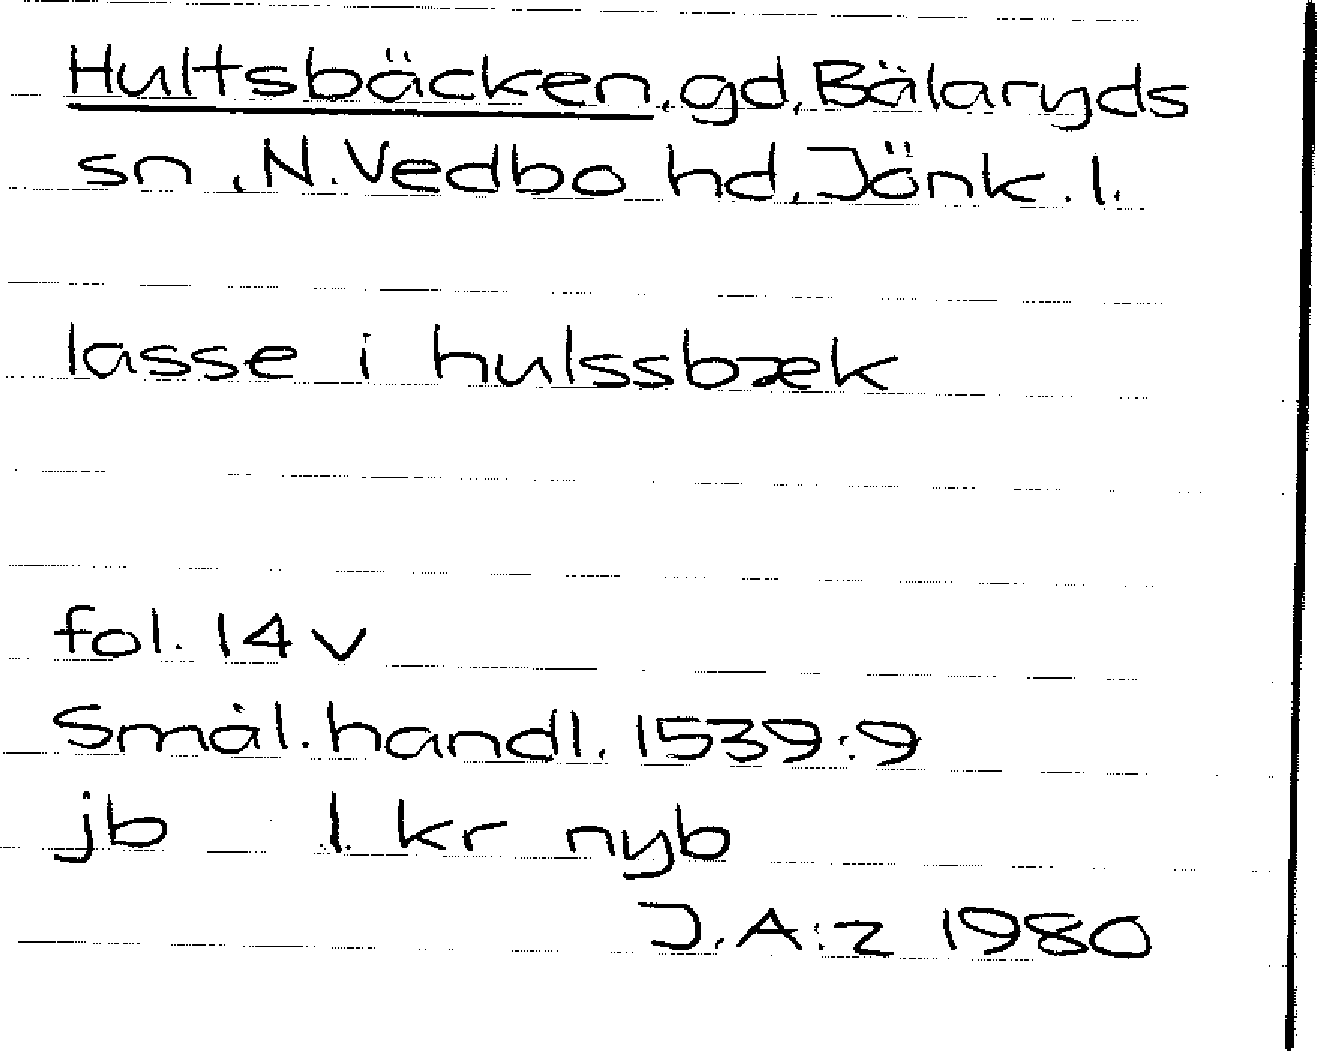 Hultsbäcken, gd, Bälaryds
sn, N. Vedbo hd, Jönk. l.
lasse i hulssbæk
fol. 14 v
Smål. handl. 1539:9
jb 1 kr nyb
J.A:z 1980